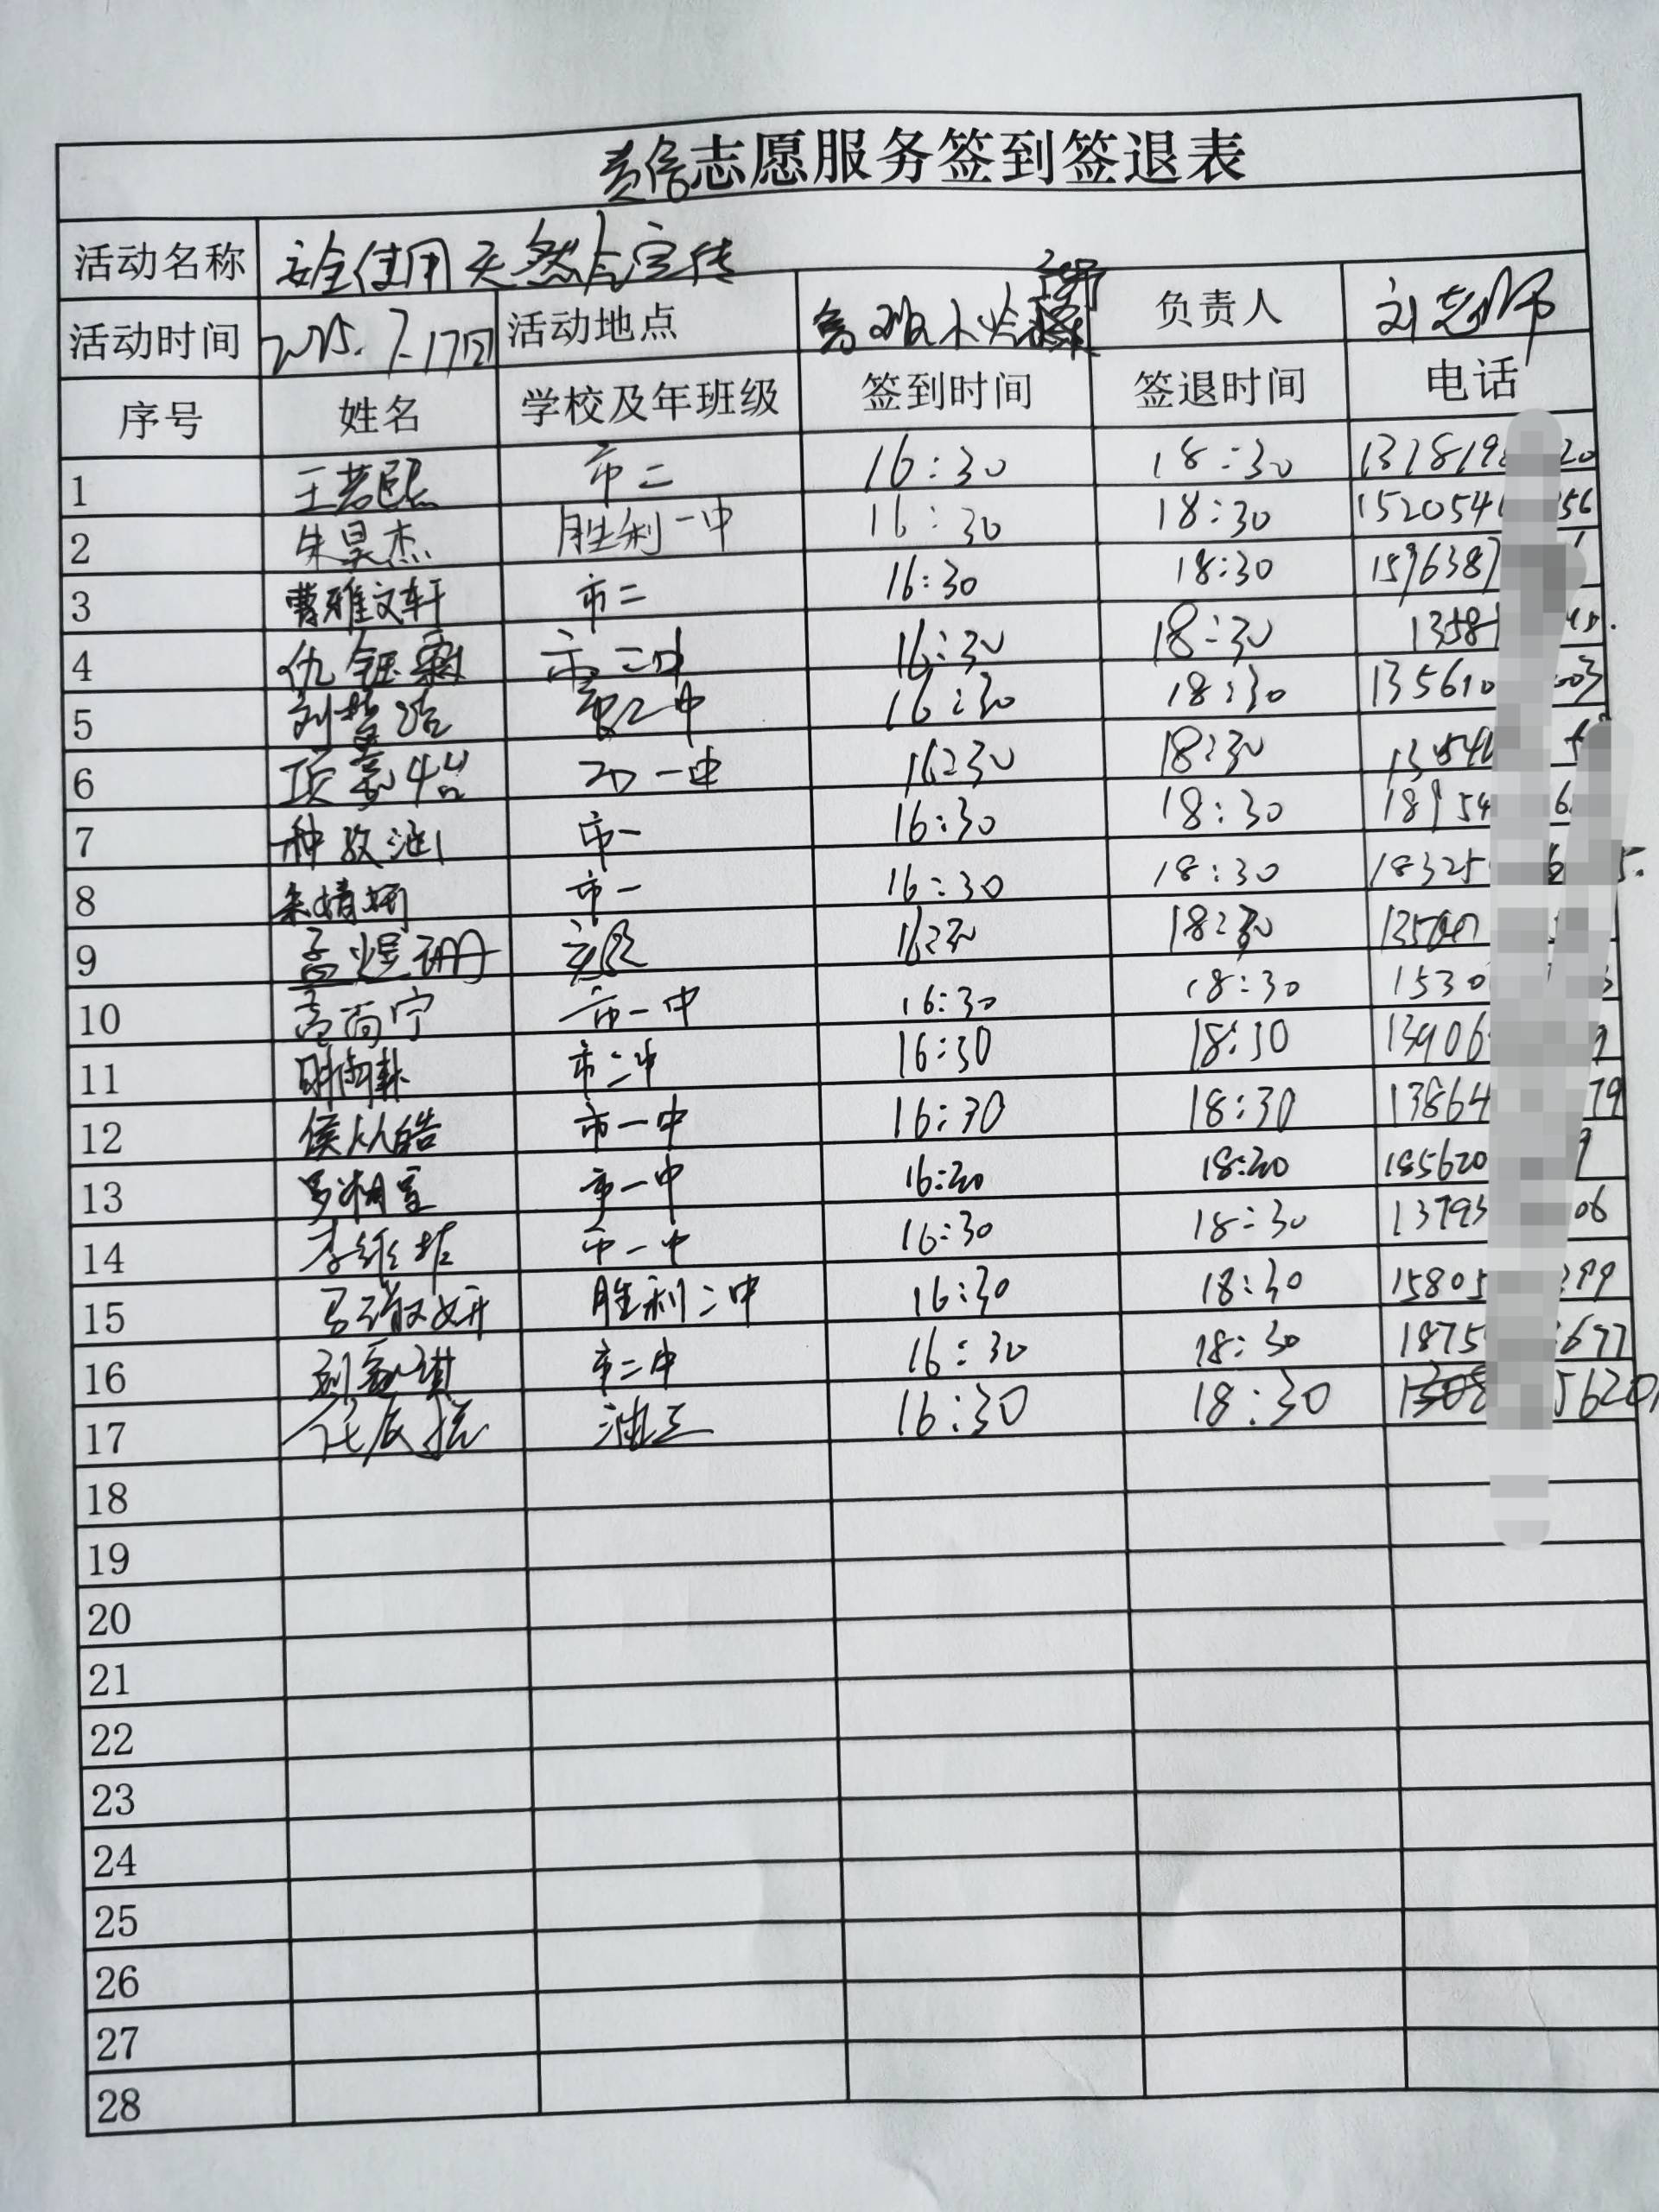 志愿服务签到签退表
活动名称 安全使用天然气宣传
活动时间 2025.7.17日 活动地点 负责人 刘志帅
序号 姓名 学校及年班级 签到时间 签退时间 电话
1 王若熙 市二 16:30 18:30 1318198 20
2 朱昊杰 胜利一中 16:30 18:30 1520546 56
3 曹雅文轩 市二 16:30 18:30 1596387
4 仇钰霖 市二中 16:30 18:30 1358
5 二中 16:30 18:30 135610 003
6 项 一中 16:30 18:30
7 种孜涵 市一 16:30 18:30 18954 6
8 朱婧妍 市一 16:30 18:30 18325 5.
9 孟煜珊 16:30 18:30
10 孟尚宁 市一中 16:30 18:30 1530
11 市二中 16:30 18:30 13906 9
12 侯从皓 市一中 16:30 18:30 13864 79
13 市一中 16:30 18:30 185620 9
14 李维 市一中 16:30 18:30 13793 06
15 马瀞文妍 胜利二中 16:30 18:30 15805 299
16 刘 琪 市二中 16:30 18:30 1875 677
17 16:30 18:30 1308 5620
18
19
20
21
22
23
24
25
26
27
28